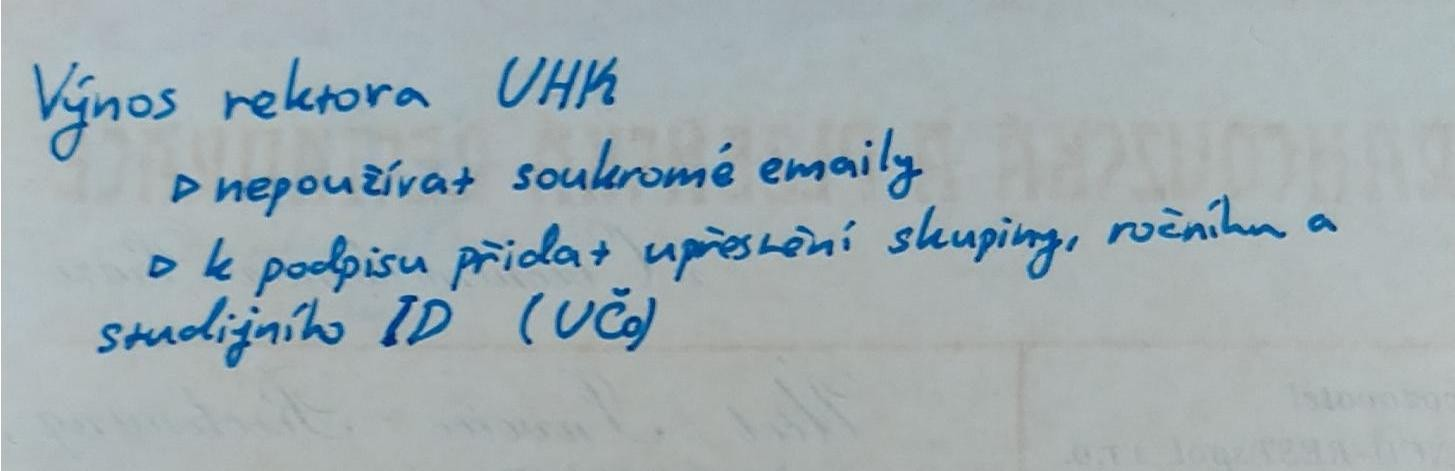 Výnos rektora UHK
▷ nepoužívat soukromé emaily
▷ k podpisu přidat upřesnění skupiny, ročníku a
studijního ID (UČO)